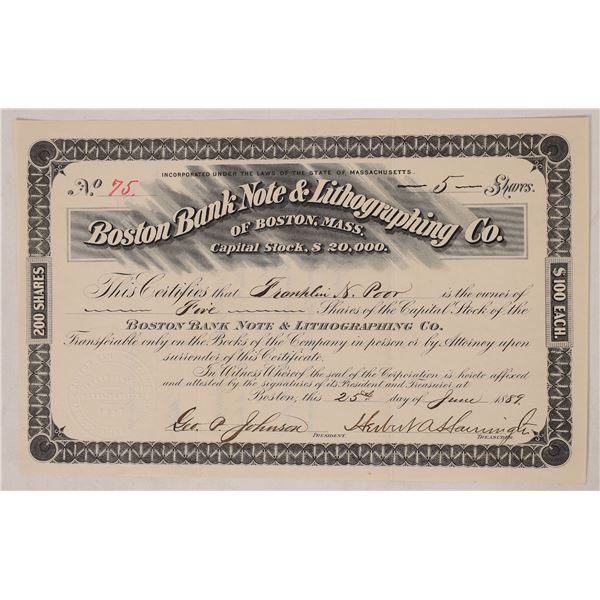 INCORPORATED UNDER THE LAWS OF THE STATE OF MASSACHUSETTS.
No 75. — 5 — Shares.
Boston Bank Note & Lithographing Co.
OF BOSTON, MASS.
Capital Stock, $ 20,000.
200 SHARES
$ 100 EACH.
This Certifies that Franklin N. Poor is the owner of
Five Shares of the Capital Stock of the
BOSTON BANK NOTE & LITHOGRAPHING CO.
Transferable only on the Books of the Company in person or by Attorney upon
surrender of this Certificate.
In Witness Whereof the seal of the Corporation is hereto affixed
and attested by the signatures of its President and Treasurer at
Boston, this 25th day of June 1889
Geo. P. Johnson Herbert A. Harrington
PRESIDENT. TREASURER.